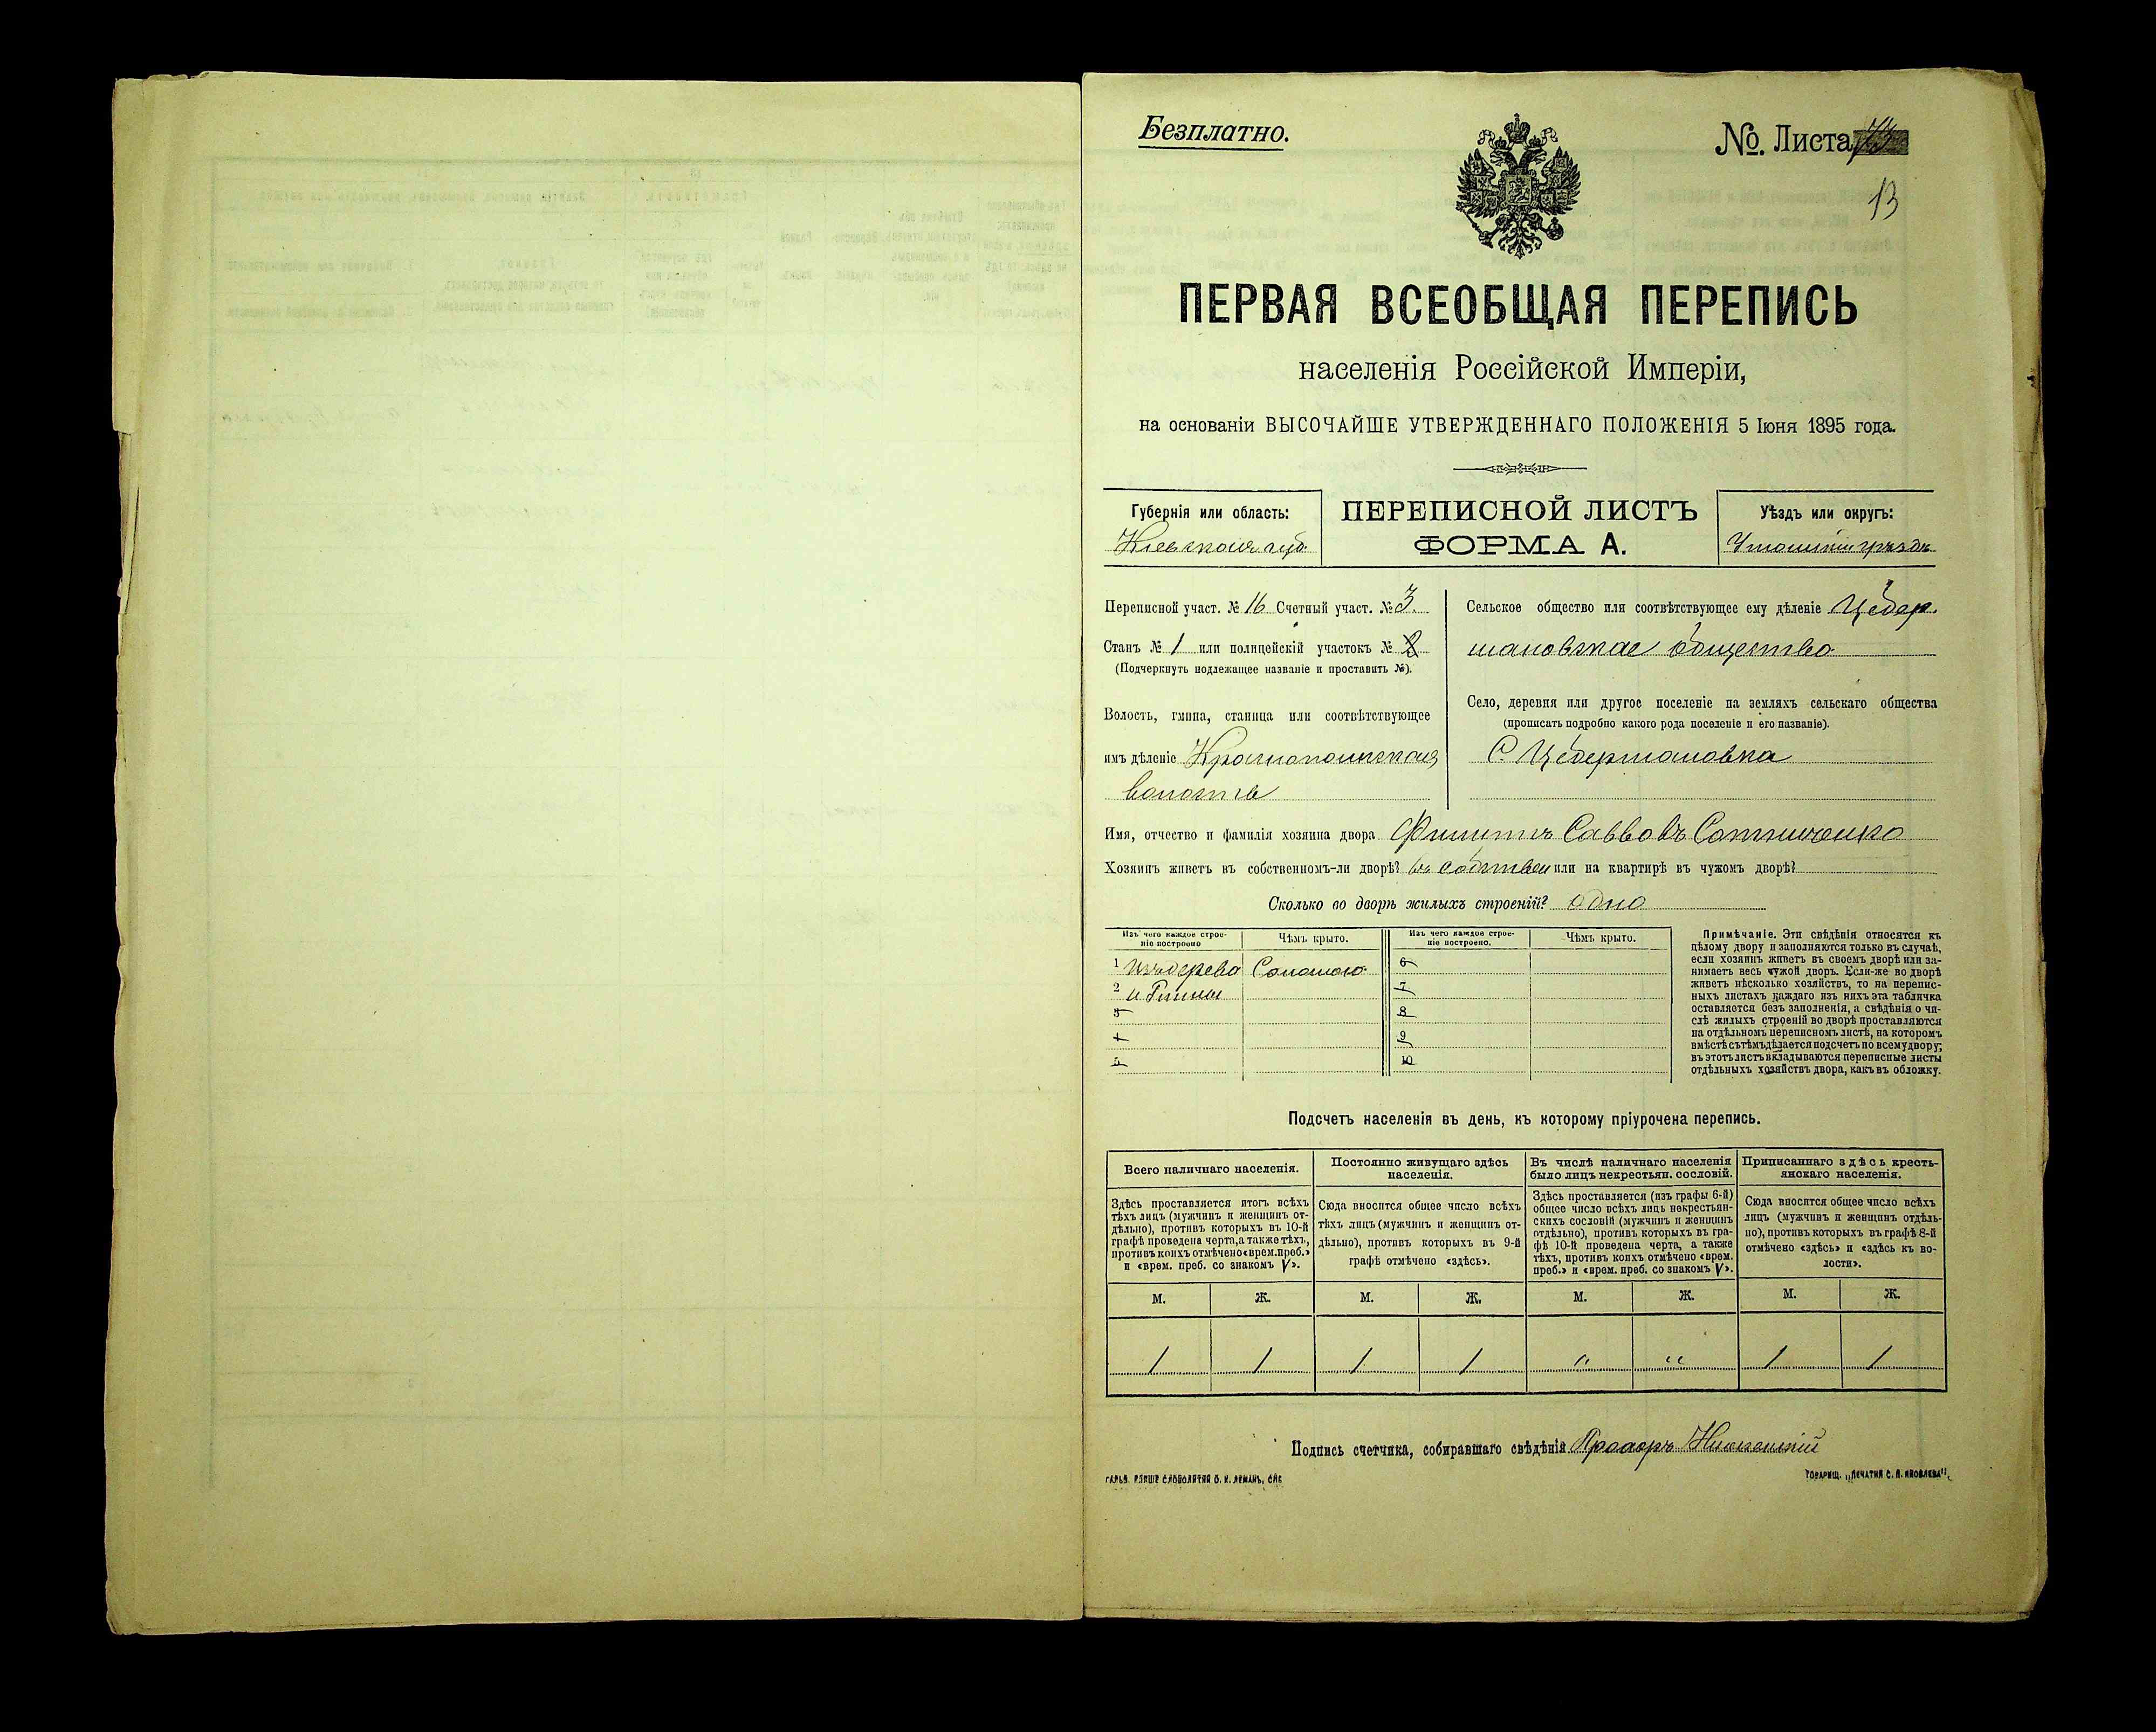 Безплатно.
№. Листа
13
ПЕРВАЯ ВСЕОБЩАЯ ПЕРЕПИСЬ
населенія Россійской Имперіи,
на основаніи ВЫСОЧАЙШЕ УТВЕРЖДЕННАГО ПОЛОЖЕНІЯ 5 Іюня 1895 года.
Губернія или область:
Кіевская губ.
ПЕРЕПИСНОЙ ЛИСТЪ
ФОРМА А.
Уѣздъ или округъ:
Уманскій уѣздъ
Переписной участ. № 16 Счетный участ. № 3.
Станъ № 1 или полицейскій участокъ №
(Подчеркнуть подлежащее названіе и проставить №).
Волость, гмина, станица или соотвѣтствующее
имъ дѣленіе Краснопольская
волость
Сельское общество или соотвѣтствующее ему дѣленіе Цебер-
мановское общество
Село, деревня или другое поселеніе на земляхъ сельскаго общества
(прописать подробно какого рода поселеніе и его названіе).
С. Цебермановка
Имя, отчество и фамилія хозяина двора Филиппъ Саввовъ Сотниченко
Хозяинъ живетъ въ собственномъ-ли дворѣ? въ собствен или на квартирѣ въ чужомъ дворѣ?
Сколько во дворѣ жилыхъ строеній? одно
Изъ чего каждое строе-
ніе построено
Чѣмъ крыто.
Изъ чего каждое строе-
ніе построено.
Чѣмъ крыто.
1 изъ дерева Соломою 6
2 и Глины 7
3 8
4 9
5 10
Примѣчаніе. Эти свѣдѣнія относятся къ
цѣлому двору и заполняются только въ случаѣ,
если хозяинъ живетъ въ своемъ дворѣ или за-
нимаетъ весь чужой дворъ. Если-же во дворѣ
живетъ нѣсколько хозяйствъ, то на перепис-
ныхъ листахъ каждаго изъ нихъ эта табличка
оставляется безъ заполненія, а свѣдѣнія о чи-
слѣ жилыхъ строеній во дворѣ проставляются
на отдѣльномъ переписномъ листѣ, на которомъ
вмѣстѣ съ тѣмъ дѣлается подсчетъ по всему двору;
въ этотъ листъ вкладываются переписные листы
отдѣльныхъ хозяйствъ двора, какъ въ обложку.
Подсчетъ населенія въ день, къ которому пріурочена перепись.
Всего наличнаго населенія.
Постоянно живущаго здѣсь
населенія.
Въ числѣ наличнаго населенія
было лицъ некрестьян. сословій.
Приписаннаго здѣсь кресть-
янскаго населенія.
Здѣсь проставляется итогъ всѣхъ
тѣхъ лицъ (мужчинъ и женщинъ от-
дѣльно), противъ которыхъ въ 10-й
графѣ проведена черта, а также тѣхъ,
противъ коихъ отмѣчено «врем. преб.»
и «врем. преб. со знакомъ V».
Сюда вносится общее число всѣхъ
тѣхъ лицъ (мужчинъ и женщинъ от-
дѣльно), противъ которыхъ въ 9-й
графѣ отмѣчено «здѣсь».
Здѣсь проставляется (изъ графы 6-й)
общее число всѣхъ лицъ некрестьян-
скихъ сословій (мужчинъ и женщинъ
отдѣльно), противъ которыхъ въ гра-
фѣ 10-й проведена черта, а также
тѣхъ, противъ коихъ отмѣчено «врем.
преб.» и «врем. преб. со знакомъ V».
Сюда вносится общее число всѣхъ
лицъ (мужчинъ и женщинъ отдѣль-
но), противъ которыхъ въ графѣ 8-й
отмѣчено «здѣсь» и «здѣсь къ во-
лости».
М. Ж. М. Ж. М. Ж. М. Ж.
1 1 1 1 " " 1 1
Подпись счетчика, собиравшаго свѣдѣнія
ТОВАРИЩ. „ПЕЧАТНЯ С. П. ЯКОВЛЕВА".